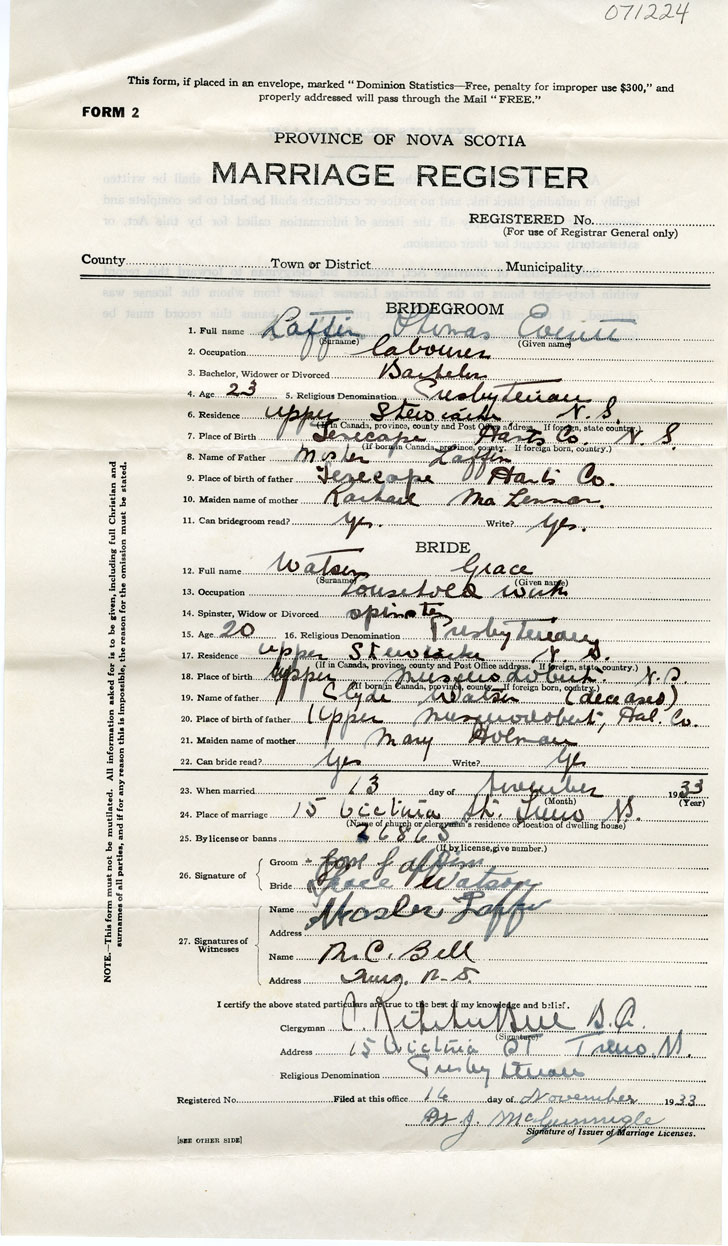 071224
This form, if placed in an envelope, marked “Dominion Statistics—Free, penalty for improper use $300,” and
properly addressed will pass through the Mail “FREE.”
FORM 2
PROVINCE OF NOVA SCOTIA
MARRIAGE REGISTER
REGISTERED No.
(For use of Registrar General only)
County Town or District Municipality
BRIDEGROOM
1. Full name Laffin Thomas Everett
(Surname) (Given name)
2. Occupation labourer
3. Bachelor, Widower or Divorced Bachelor
4. Age 23 5. Religious Denomination Presbyterian
6. Residence Upper Stewiacke N. S.
(If in Canada, province, county and Post Office address. If foreign, state country.)
7. Place of Birth Tenecape Hants Co. N. S.
(If born in Canada, province, county. If foreign born, country.)
8. Name of Father Laffin
9. Place of birth of father Tenecape Hants Co.
10. Maiden name of mother Rachael
11. Can bridegroom read? Yes. Write? Yes.
BRIDE
12. Full name Watson Grace
(Surname) (Given name)
13. Occupation household work
14. Spinster, Widow or Divorced spinster
15. Age 20 16. Religious Denomination Presbyterian
17. Residence Upper Stewiacke N. S.
(If in Canada, province, county and Post Office address. If foreign, state country.)
18. Place of birth Upper Musquodoboit N.S.
(If born in Canada, province, county. If foreign born, country.)
19. Name of father Clyde Watson (deceased)
20. Place of birth of father Upper Musquodoboit, Hal. Co.
21. Maiden name of mother Mary Holman
22. Can bride read? Yes Write? Yes
23. When married 13 day of November 1933
(Month) (Year)
24. Place of marriage 15 Victoria St. Truro N.S.
(Name of church or clergyman's residence or location of dwelling house)
25. By license or banns 26865
(If by license, give number.)
26. Signature of
Groom Laffin
Bride Grace Watson
27. Signatures of Witnesses
Name Laffin
Address
Name R. C. Bell
Address Truro N.S.
I certify the above stated particulars are true to the best of my knowledge and belief.
Clergyman
(Signature)
Address 15 Victoria St Truro N.S.
Religious Denomination Presbyterian
Registered No. Filed at this office 16 day of November 1933
McGunnigle
Signature of Issuer of Marriage Licenses.
[SEE OTHER SIDE]
NOTE.—This form must not be mutilated. All information asked for is to be given, including full Christian and
surnames of all parties, and if for any reason this is impossible, the reason for the omission must be stated.